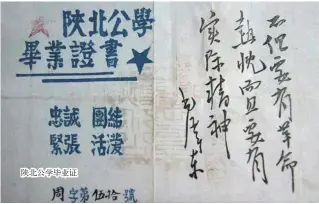 陝北公學
畢業證書
忠誠 團結
緊張 活潑
周字第伍拾號
不但要有革命
熱忱而且要有
实际精神
毛泽东
陕北公学毕业证